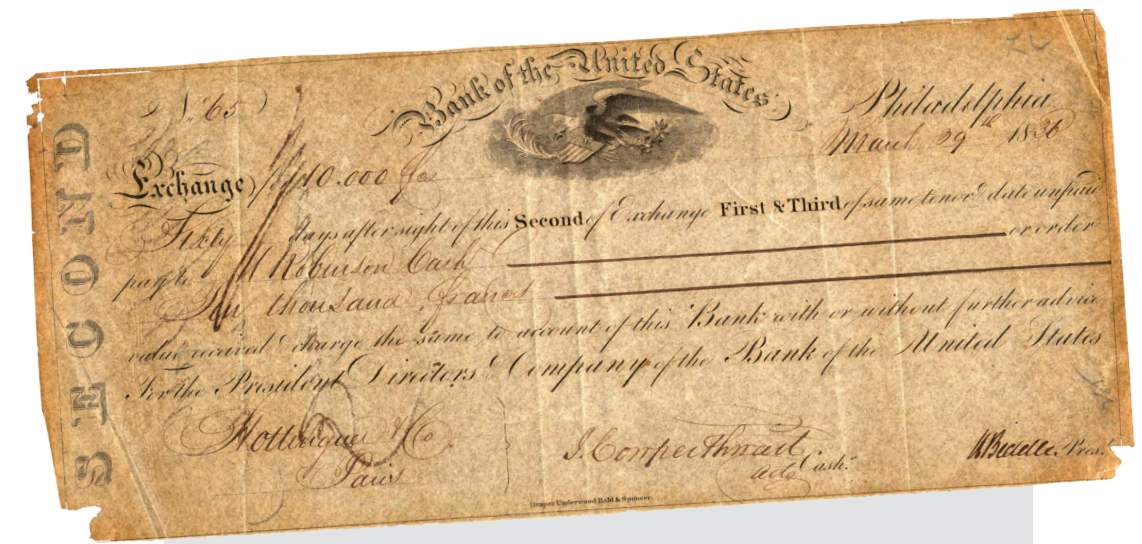 SECOND
No. 65
Bank of the United States
Philadelphia
March 29th 1836
Exchange 10.000 fcs
Sixty days after sight of this Second of Exchange First & Third of same tenor & date unpaid
pay to Robinson Cash or order
Ten thousand francs
value received & charge the same to account of this Bank with or without further advice
For the President Directors & Company of the Bank of the United States
Hottinguer & Co
Paris
J. Cowperthwait
actg Cashr.
N Biddle Pres.
Draper Underwood Bald & Spencer